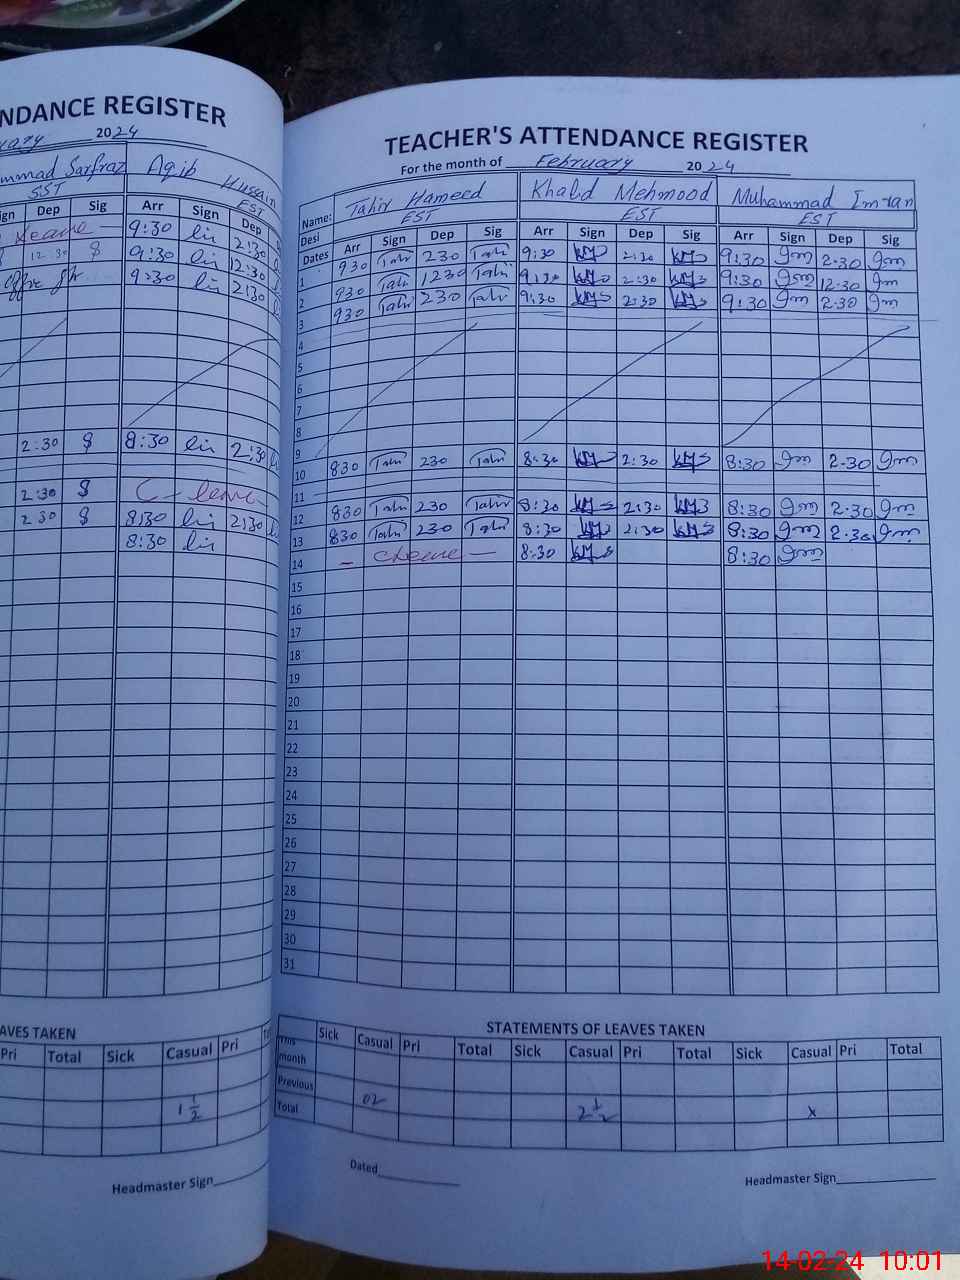 NDANCE REGISTER
2024
mmad Sarfraz Aqib Hussain
SST EST
ign Dep Sig Arr Sign Dep
Leave — 9:30 2:30
12:30 $ 9:30 12:30
9:30 2:30
2:30 $ 8:30 2:30
2:30 $ C - leave
2:30 $ 8:30 2:30
8:30
AVES TAKEN
Pri Total Sick Casual Pri
1 1/2
Headmaster Sign
TEACHER'S ATTENDANCE REGISTER
For the month of February 2024
Name: Tahir Hameed Khalid Mehmood Muhammad Imran
Desi EST EST EST
Dates Arr Sign Dep Sig Arr Sign Dep Sig Arr Sign Dep Sig
1 930 Tahir 230 Tahir 9:30 KM 2:30 KM 9:30 Im 2.30 Im
2 930 Tahir 1230 Tahir 9:30 KM 2:30 KM 9:30 Im 12.30 Im
3 930 Tahir 230 Tahir 9:30 KM 2:30 KM 9:30 Im 2.30 Im
4
5
6
7
8
9
10 830 Tahir 230 Tahir 8:30 KM 2:30 KM 8:30 Im 2.30 Im
11
12 830 Tahir 230 Tahir 8:30 KM 2:30 KM 8:30 Im 2.30 Im
13 830 Tahir 230 Tahir 8:30 KM 2:30 KM 8:30 Im 2.30 Im
14 — cleave — 8:30 KM 8:30 Im
15
16
17
18
19
20
21
22
23
24
25
26
27
28
29
30
31
STATEMENTS OF LEAVES TAKEN
This month Sick Casual Pri Total Sick Casual Pri Total Sick Casual Pri Total
Previous
Total 02 2 1/2 x
Dated Headmaster Sign
14-02-24 10:01